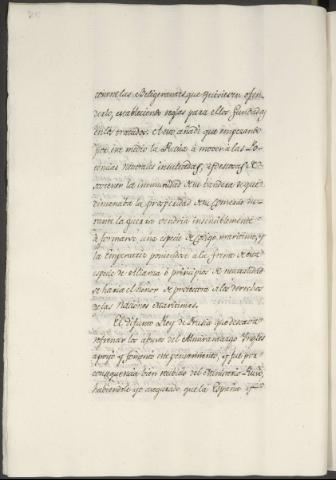 contra las Beligerantes que quisiesen ofen
derlo, estableciendo reglas para ellos fundadas
en los tratados. A esto añadi que empezando
por este medio la Rusia á mover a las Po
tencias neutrales insultadas, y deseosas de
sostener la inmunidad de su bandera de que
dimanaba la prosperidad de su Comercio du
rante la guerra vendria insensiblemente
á formarse una especie de Codigo maritimo, y
la Emperatriz poniendose á la frente de esta
especie de Alianza ó principios de neutralidad
se haria el honor de protectora a los derechos
de las Naciones Maritimas.
El difunto Rey de Prusia que deseaba
refrenar los abusos del Almirantazgo Ingles
apoyó y fomentó este pensamiento, y fue por
consequencia bien recibido del Ministerio Ruso,
habiendole yo asegurado que la España